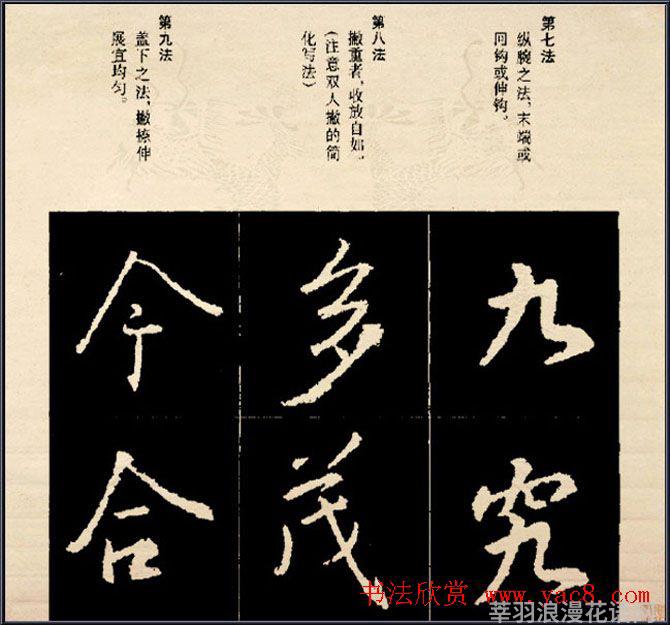 第七法
纵腕之法，末端或
回钩或伸钩。
第八法
撇重者，收放自如，
（注意双人撇的简
化写法）
第九法
盖下之法，撇捺伸
展宜均匀。
九
究
多
茂
今
合
书法欣赏 www.yac8.com
莘羽浪漫花